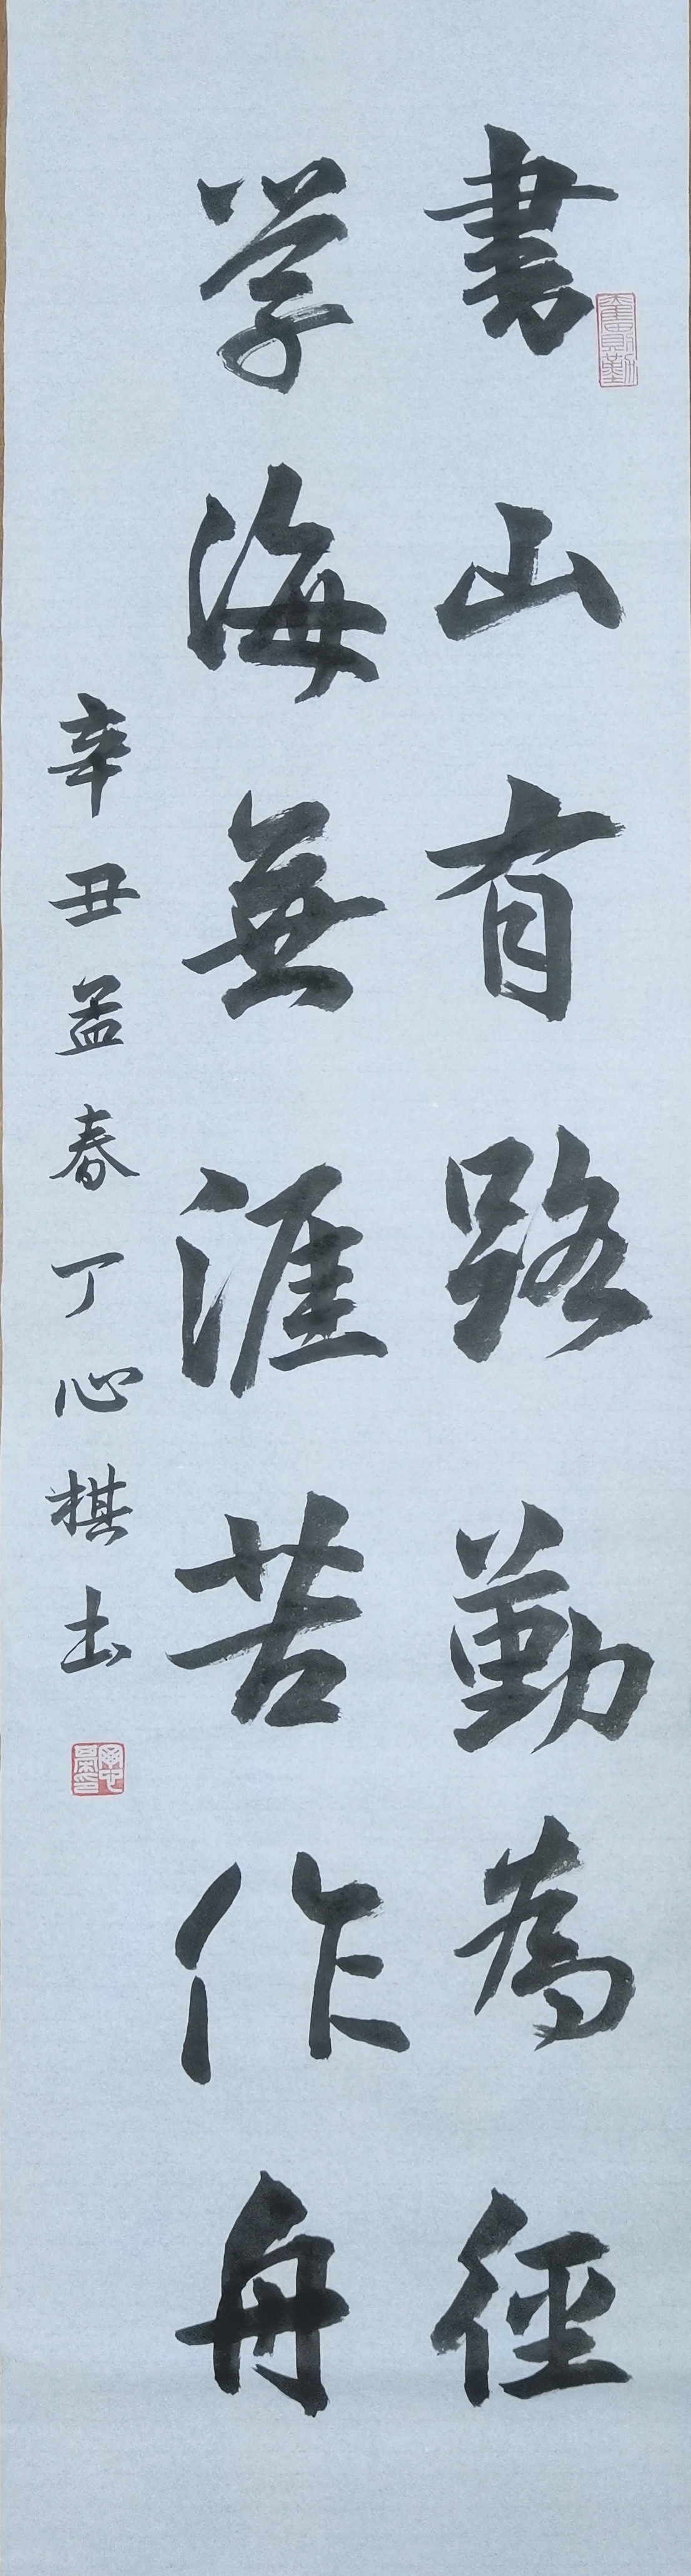 書山有路勤為徑
学海無涯苦作舟
辛丑孟春丁心棋书